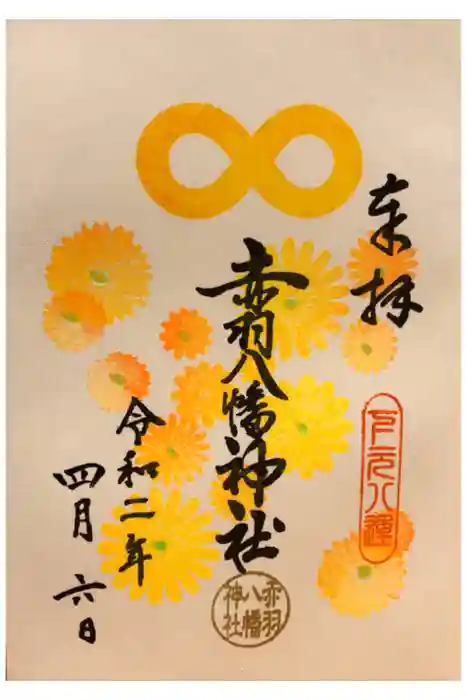 奉拝
赤羽八幡神社
令和二年
四月六日
下元八運
赤羽
八幡
神社